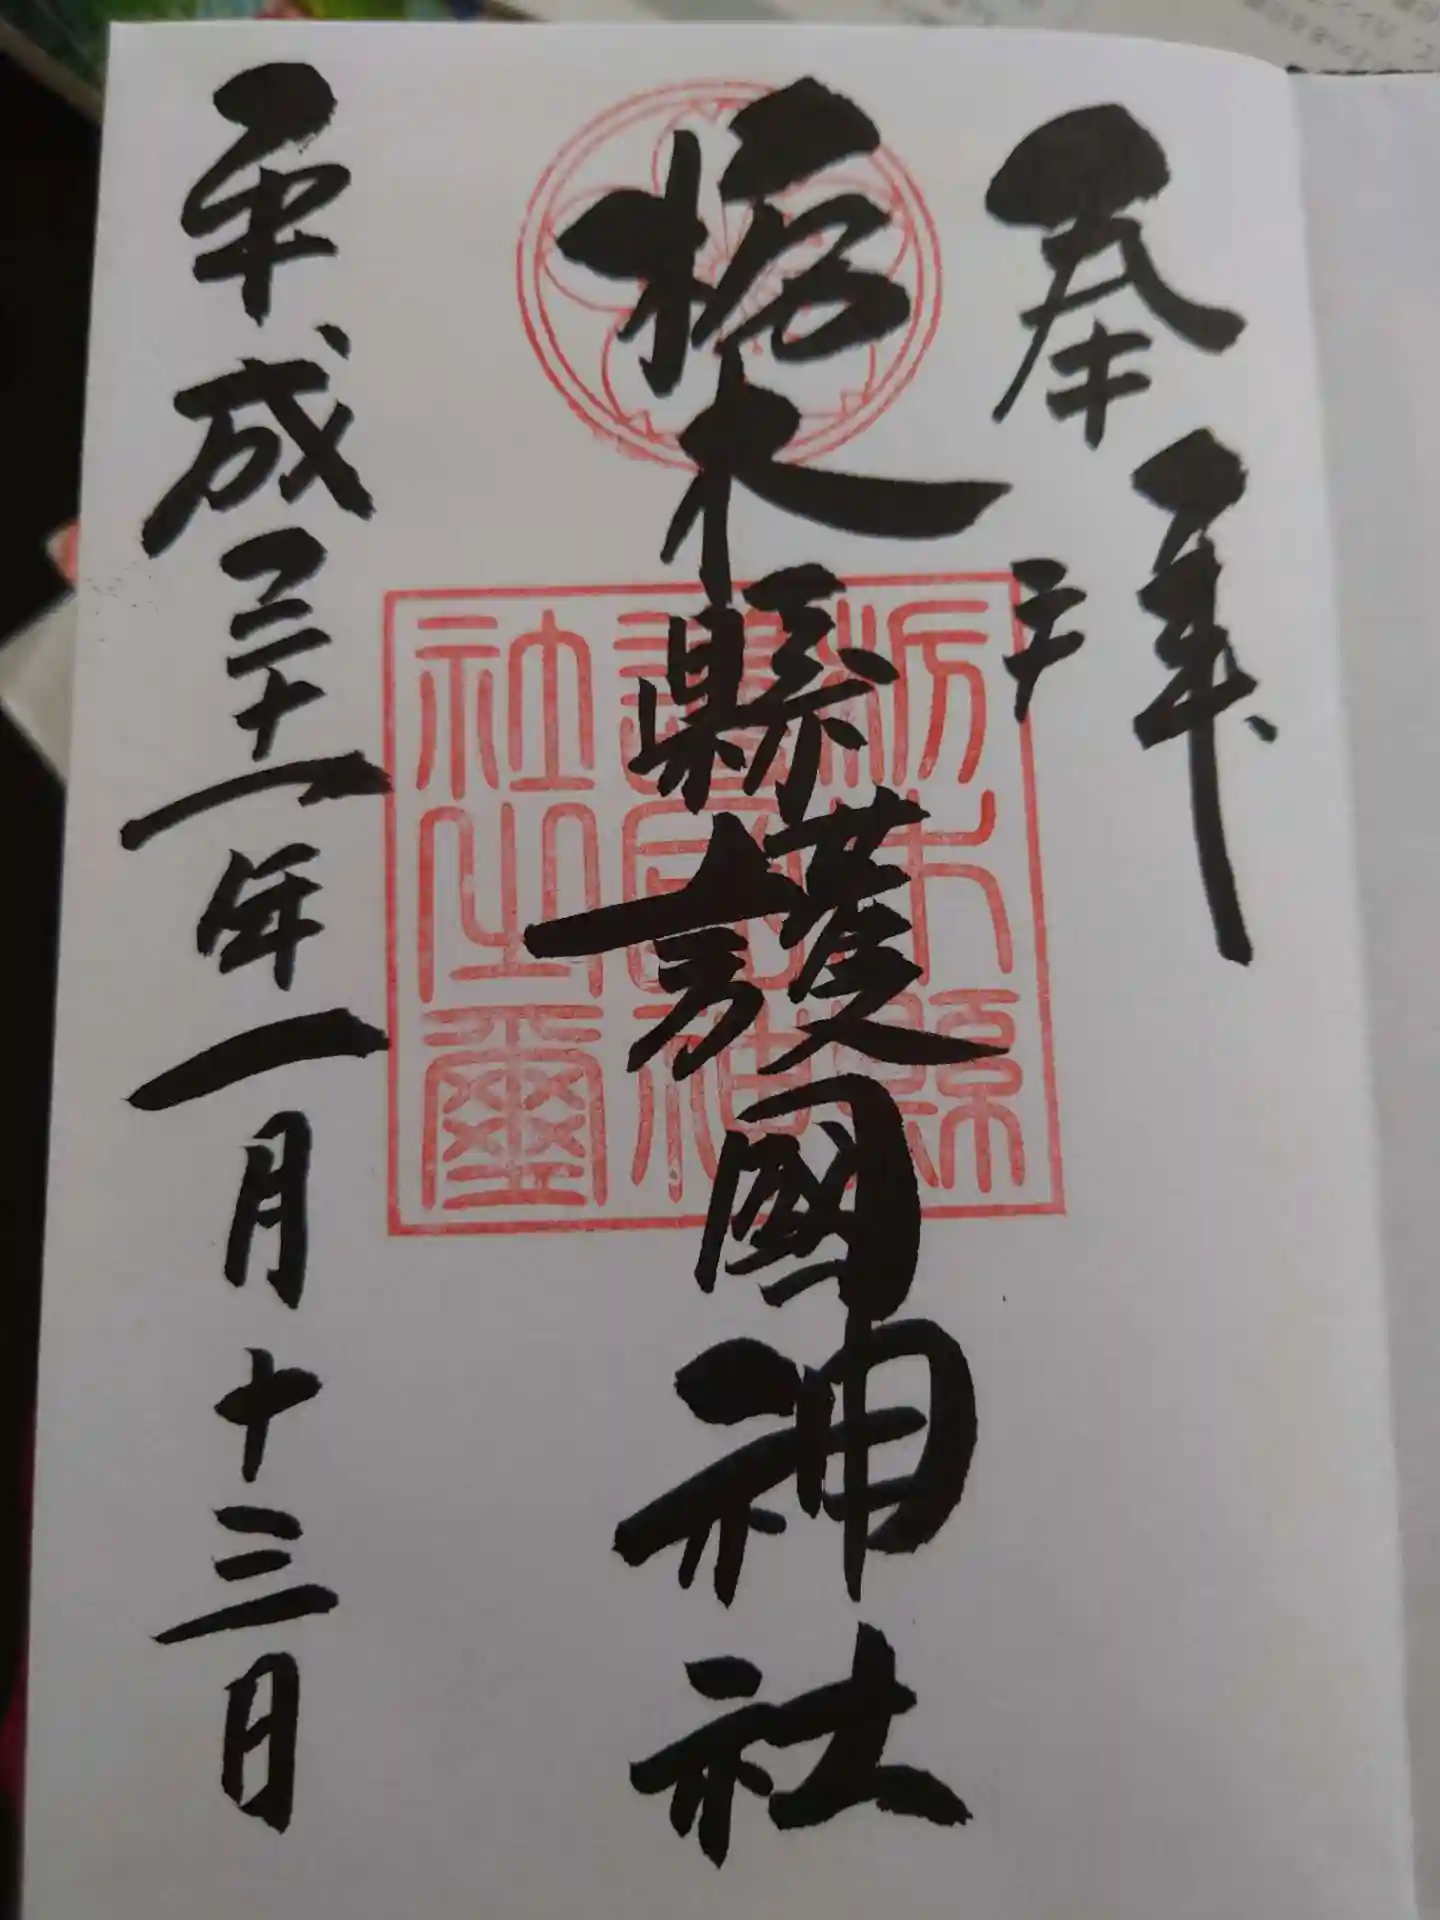 奉拝
栃木縣護國神社
平成三十一年一月十三日
栃木縣
護國神
社之璽